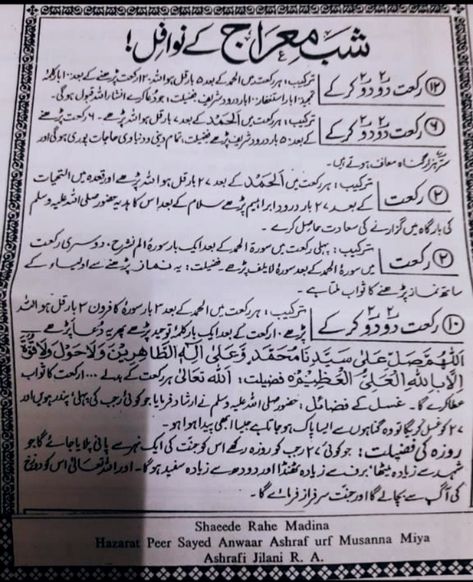 شب معراج کے نوافل!
۱۲ رکعت دو دو کرکے ترکیب: ہر رکعت میں الحمد کے بعد ۵ بار قل ہو اللہ، ۱۲ رکعت پڑھنے کے بعد ۱۰ بار کلمہ
تمجید، ۱۰۰ بار استغفار، ۱۰۰ بار درود شریف۔ فضیلت: جو دعا کرے انشاءاللہ قبول ہوگی۔
۶ رکعت دو دو کرکے ترکیب: ہر رکعت میں الحمد کے بعد ۷ بار قل ہو اللہ پڑھے۔ ۶ رکعت پڑھنے
کے بعد: ۵۰ بار درود شریف پڑھے فضیلت: تمام دینی و دنیاوی حاجات پوری ہوگی اور
ستر ہزار گناہ معاف ہوتے ہیں۔
۲ رکعت ترکیب: ہر رکعت میں الحمد کے بعد ۲۷ بار قل ہو اللہ پڑھے اور قعدہ میں التحیات
کے بعد ۲۷ بار درود ابراہیم پڑھے سلام کے بعد اس کا ہدیہ حضور صلی اللہ علیہ وسلم
کی بارگاہ میں گزارنے کی سعادت حاصل کرے۔
۲ رکعت ترکیب: پہلی رکعت میں سورۂ الحمد کے بعد ایک بار سورۂ الم نشرح، دوسری رکعت
میں سورۂ الحمد کے بعد سورۂ لایلف پڑھے۔ فضیلت: یہ نماز پڑھنے سے اولیاء کے
ساتھ نماز پڑھنے کا ثواب ملتا ہے۔
۱۰ رکعت دو دو کرکے ترکیب: ہر رکعت میں الحمد کے بعد ۳ بار سورۂ کافرون ۳ بار قل ہو اللہ
پڑھے، ۱۰ رکعت کے بعد ایک بار کلمۂ توحید پڑھے پھر یہ دعا پڑھے
اَللّٰهُمَّ صَلِّ عَلٰی سَیِّدِنَا مُحَمَّدٍ وَّعَلٰی اٰلِهِ الطَّاهِرِیْنَ وَلَا حَوْلَ وَلَا قُوَّةَ
اِلَّا بِاللهِ الْعَلِیِّ الْعَظِیْمِ ۵ فضیلت: اللہ تعالیٰ ہر رکعت کے بدلے ... رکعت کا ثواب
عطا کرے گا۔ غسل کے فضائل: حضور صلی اللہ علیہ وسلم نے ارشاد فرمایا جو کوئی رجب کی پہلی، پندرہویں اور
۲۷ کو غسل کریگا تو وہ گناہوں سے ایسا پاک ہو جاتا ہے جیسا ابھی پیدا ہوا ہو۔
روزہ کی فضیلت: جو کوئی ۲۷ رجب کو روزہ رکھے اس کو جنت کی ایک نہر سے پانی پلایا جائے گا جو
شہد سے زیادہ میٹھا، برف سے زیادہ ٹھنڈا اور دودھ سے زیادہ سفید ہوگا۔ اور اللہ تعالیٰ اس کو دوزخ
کی آگ سے بچالے گا اور جنت سرفراز فرمائے گا۔
Shaeede Rahe Madina
Hazarat Peer Sayed Anwaar Ashraf urf Musanna Miya
Ashrafi Jilani R. A.